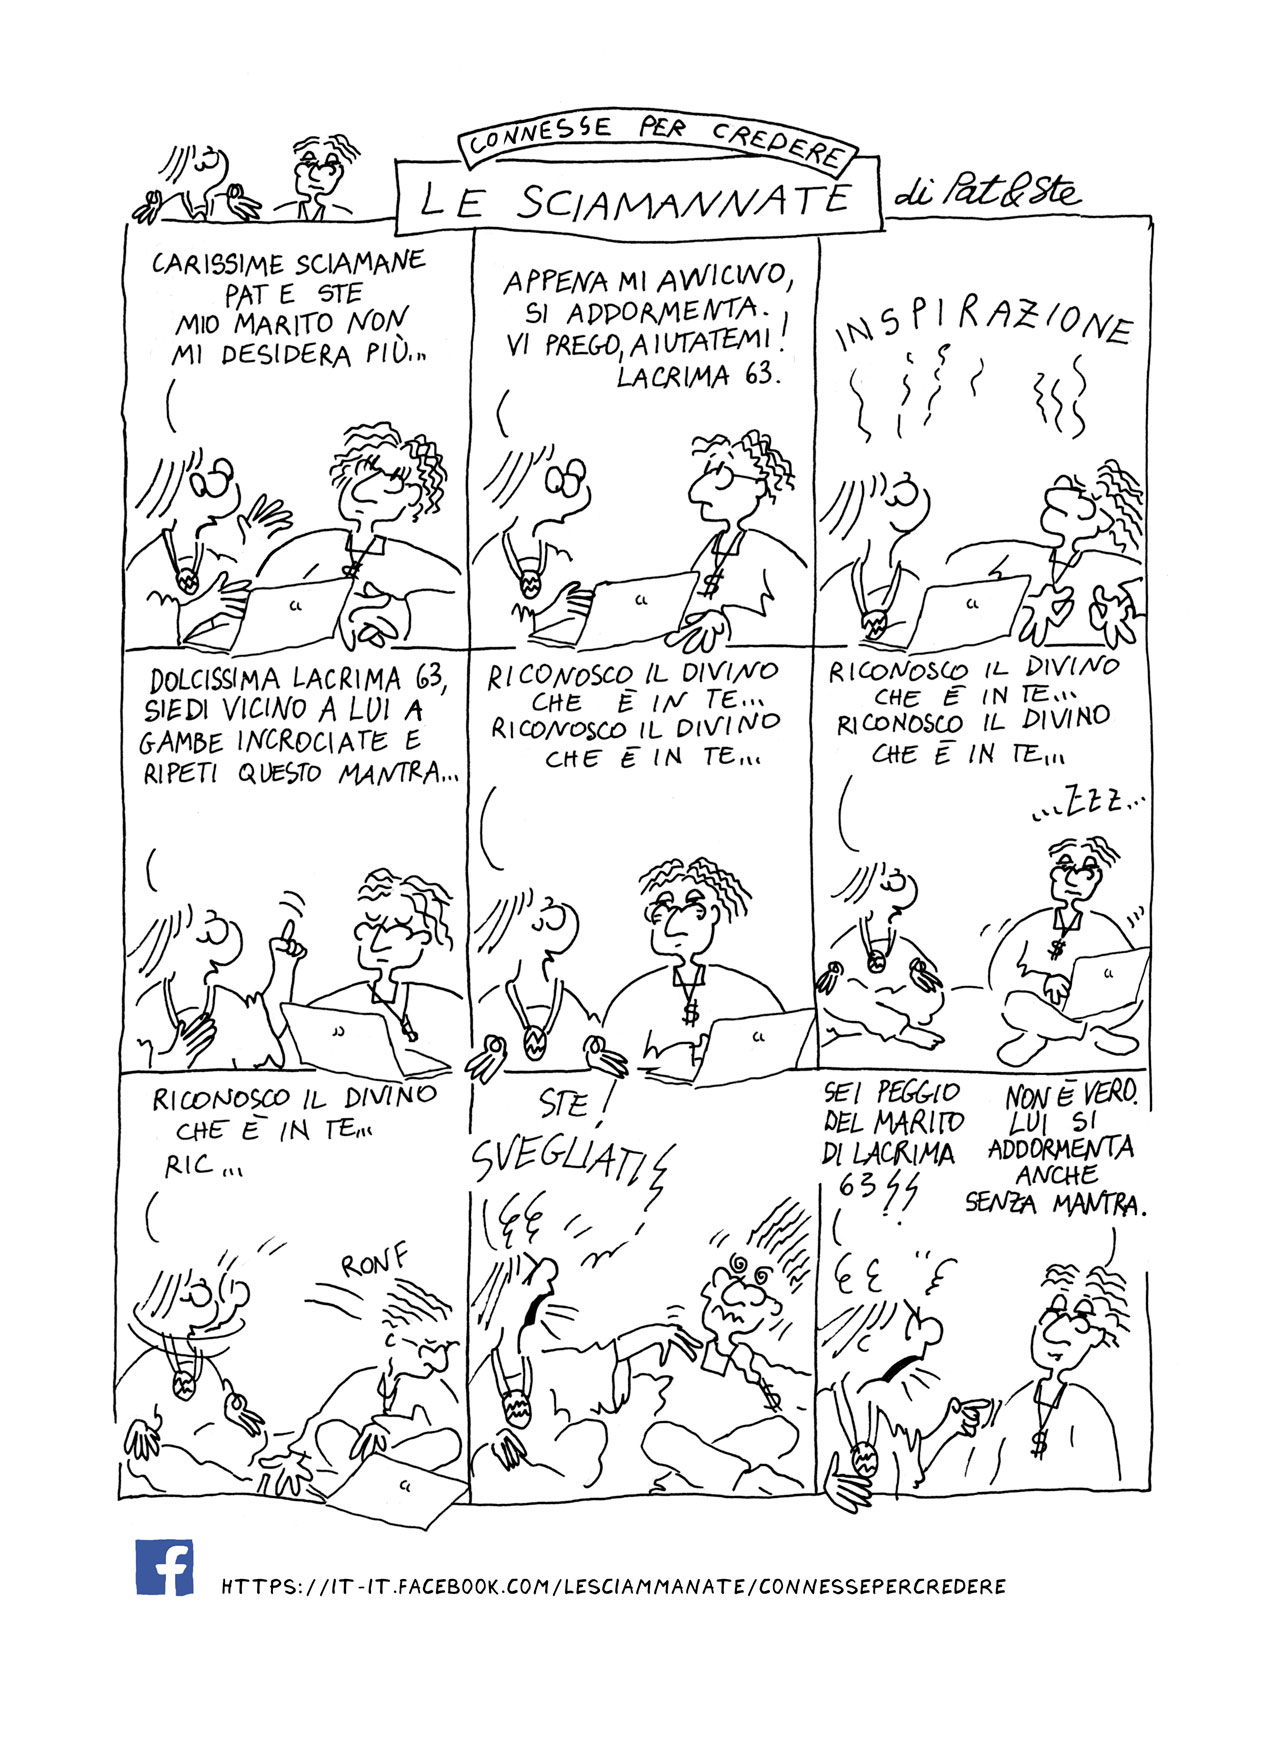 CONNESSE PER CREDERE
LE SCIAMANNATE
di Pat&Ste
CARISSIME SCIAMANE
PAT E STE
MIO MARITO NON
MI DESIDERA PIÙ...
APPENA MI AVVICINO,
SI ADDORMENTA.
VI PREGO, AIUTATEMI!
LACRIMA 63.
INSPIRAZIONE
DOLCISSIMA LACRIMA 63,
SIEDI VICINO A LUI A
GAMBE INCROCIATE E
RIPETI QUESTO MANTRA...
RICONOSCO IL DIVINO
CHE È IN TE...
RICONOSCO IL DIVINO
CHE È IN TE...
RICONOSCO IL DIVINO
CHE È IN TE...
RICONOSCO IL DIVINO
CHE È IN TE...
...ZZZ...
RICONOSCO IL DIVINO
CHE È IN TE...
RIC...
RONF
STE!
SVEGLIATI!
SEI PEGGIO
DEL MARITO
DI LACRIMA
63!!
NON È VERO.
LUI SI
ADDORMENTA
ANCHE
SENZA MANTRA.
f
HTTPS://IT-IT.FACEBOOK.COM/LESCIAMMANATE/CONNESSEPERCREDERE